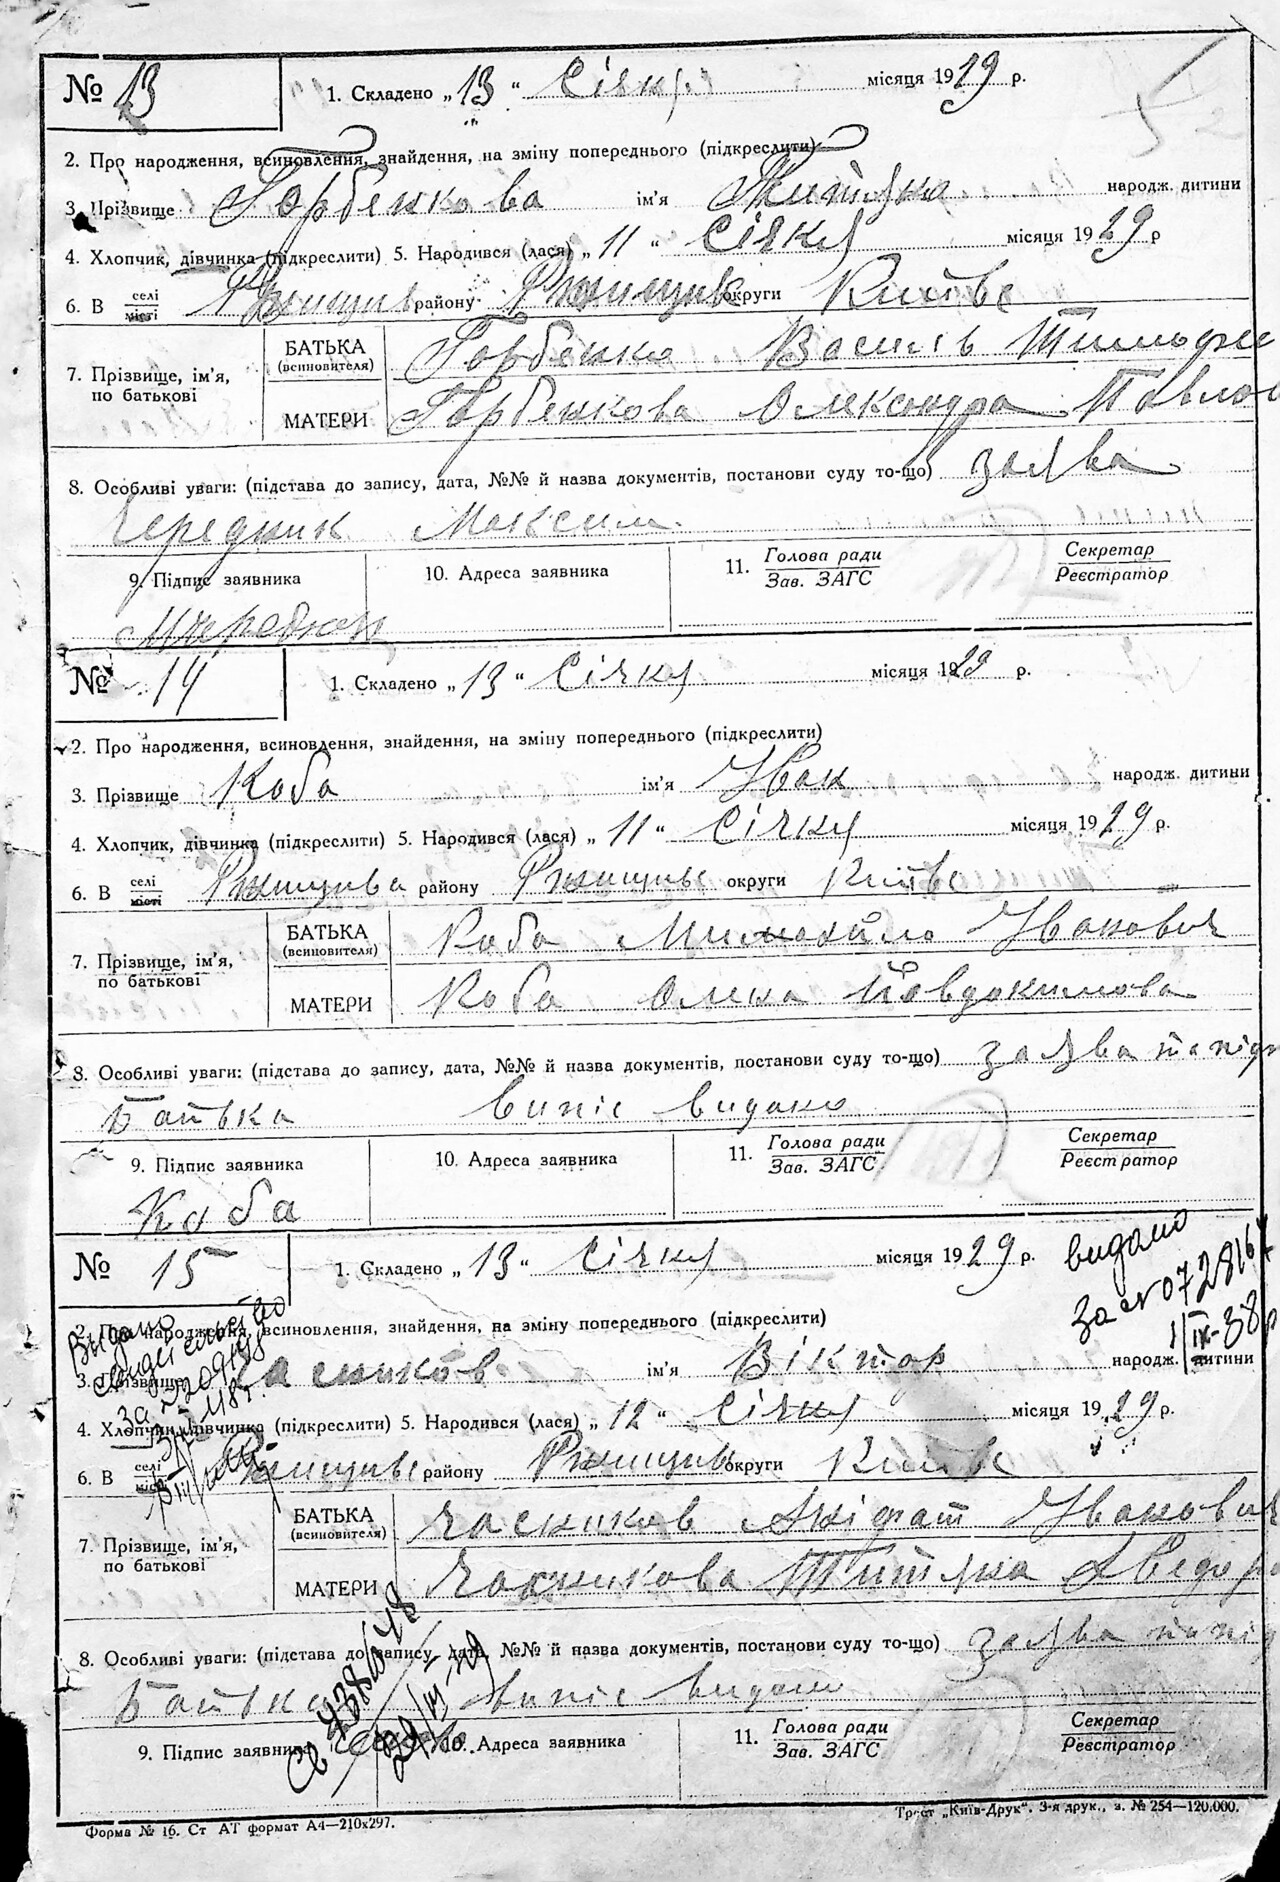 № 13 1. Складено „13“ Січня місяця 1929 р.
2. Про народження, всиновлення, знайдення, на зміну попереднього (підкреслити)
3. Прізвище Горбенкова ім'я Титяна народж. дитини
4. Хлопчик, дівчинка (підкреслити) 5. Народився (лася) „11“ Січня місяця 1929 р
6. В селі місті Ржищив району Ржищивс округи Київс
7. Прізвище, ім'я, по батькові
БАТЬКА (всиновителя) Горбенко Василь
МАТЕРИ Горбенкова Олександра Павлов
8. Особливі уваги: (підстава до запису, дата, №№ й назва документів, постанови суду то-що) заява
Середник Максим
9. Підпис заявника 10. Адреса заявника 11. Голова ради Зав. ЗАГС Секретар Реєстратор
№ 14 1. Складено „13“ Січня місяця 1929 р.
2. Про народження, всиновлення, знайдення, на зміну попереднього (підкреслити)
3. Прізвище Коба ім'я Иван народж. дитини
4. Хлопчик, дівчинка (підкреслити) 5. Народився (лася) „11“ Січня місяця 1929 р.
6. В селі місті Ржищива району Ржищивс округи Київс
7. Прізвище, ім'я, по батькові
БАТЬКА (всиновителя) Коба Иванович
МАТЕРИ Коба Олена Йовдокимова
8. Особливі уваги: (підстава до запису, дата, №№ й назва документів, постанови суду то-що) заява та підп
батька випис видано
9. Підпис заявника 10. Адреса заявника 11. Голова ради Зав. ЗАГС Секретар Реєстратор
Коба
№ 15 1. Складено „13“ Січня місяця 1929 р.
видано
2. Про народження, всиновлення, знайдення, на зміну попереднього (підкреслити)
3. Прізвище ім'я Віктор народж. дитини
4. Хлопчик, дівчинка (підкреслити) 5. Народився (лася) „12“ Січня місяця 1929 р.
6. В селі місті Ржищивс району Ржищивс округи Київс
7. Прізвище, ім'я, по батькові
БАТЬКА (всиновителя) Часников Иванович
МАТЕРИ Часникова Титяна
8. Особливі уваги: (підстава до запису, дата, №№ й назва документів, постанови суду то-що) заява та під
батька випис видано
9. Підпис заявника 10. Адреса заявника 11. Голова ради Зав. ЗАГС Секретар Реєстратор
Форма № 16. Ст АТ формат А4—210х297. Трест „Київ-Друк“. 3-я друк., з. № 254—120.000.